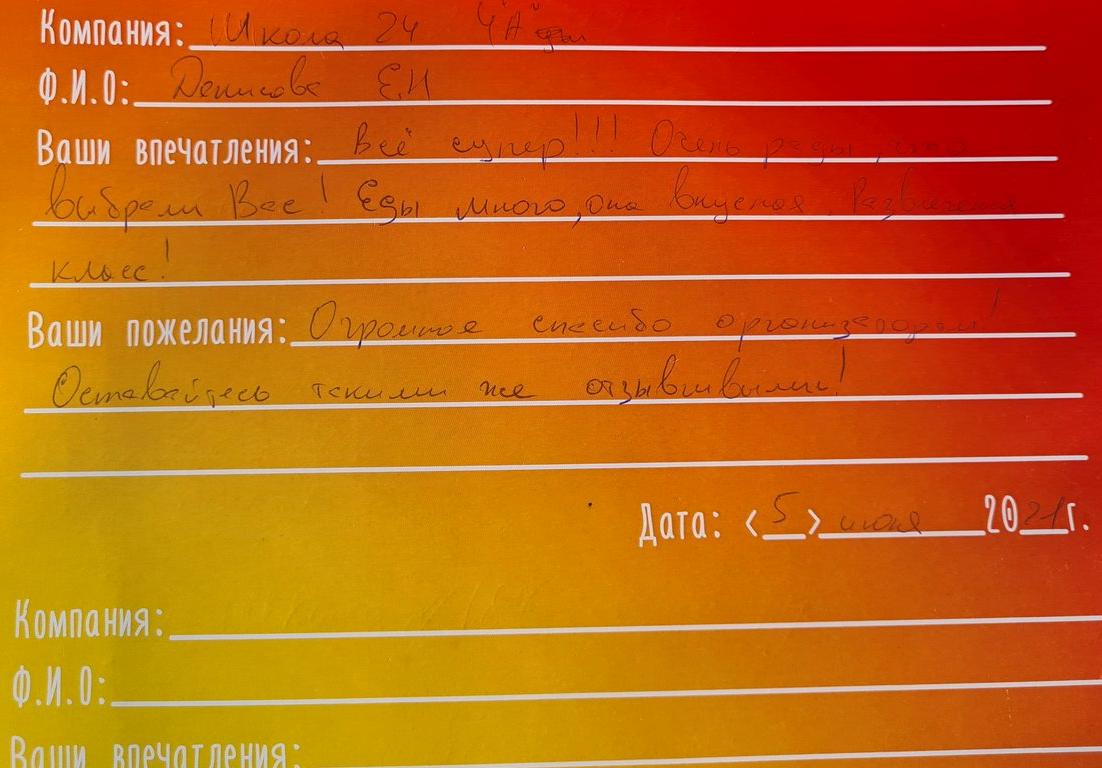 Компания: Школа 24 4"А"
Ф.И.О: Денисова Е.Н
Ваши впечатления: Всё супер!!! Очень рады, что
выбрали Вас! Еды много, она вкусная. Развлечения
класс!
Ваши пожелания: Огромное спасибо организаторам!
Оставайтесь такими же отзывчивыми!
Дата: <5> 2021г.
Компания:
Ф.И.О:
Ваши впечатления: